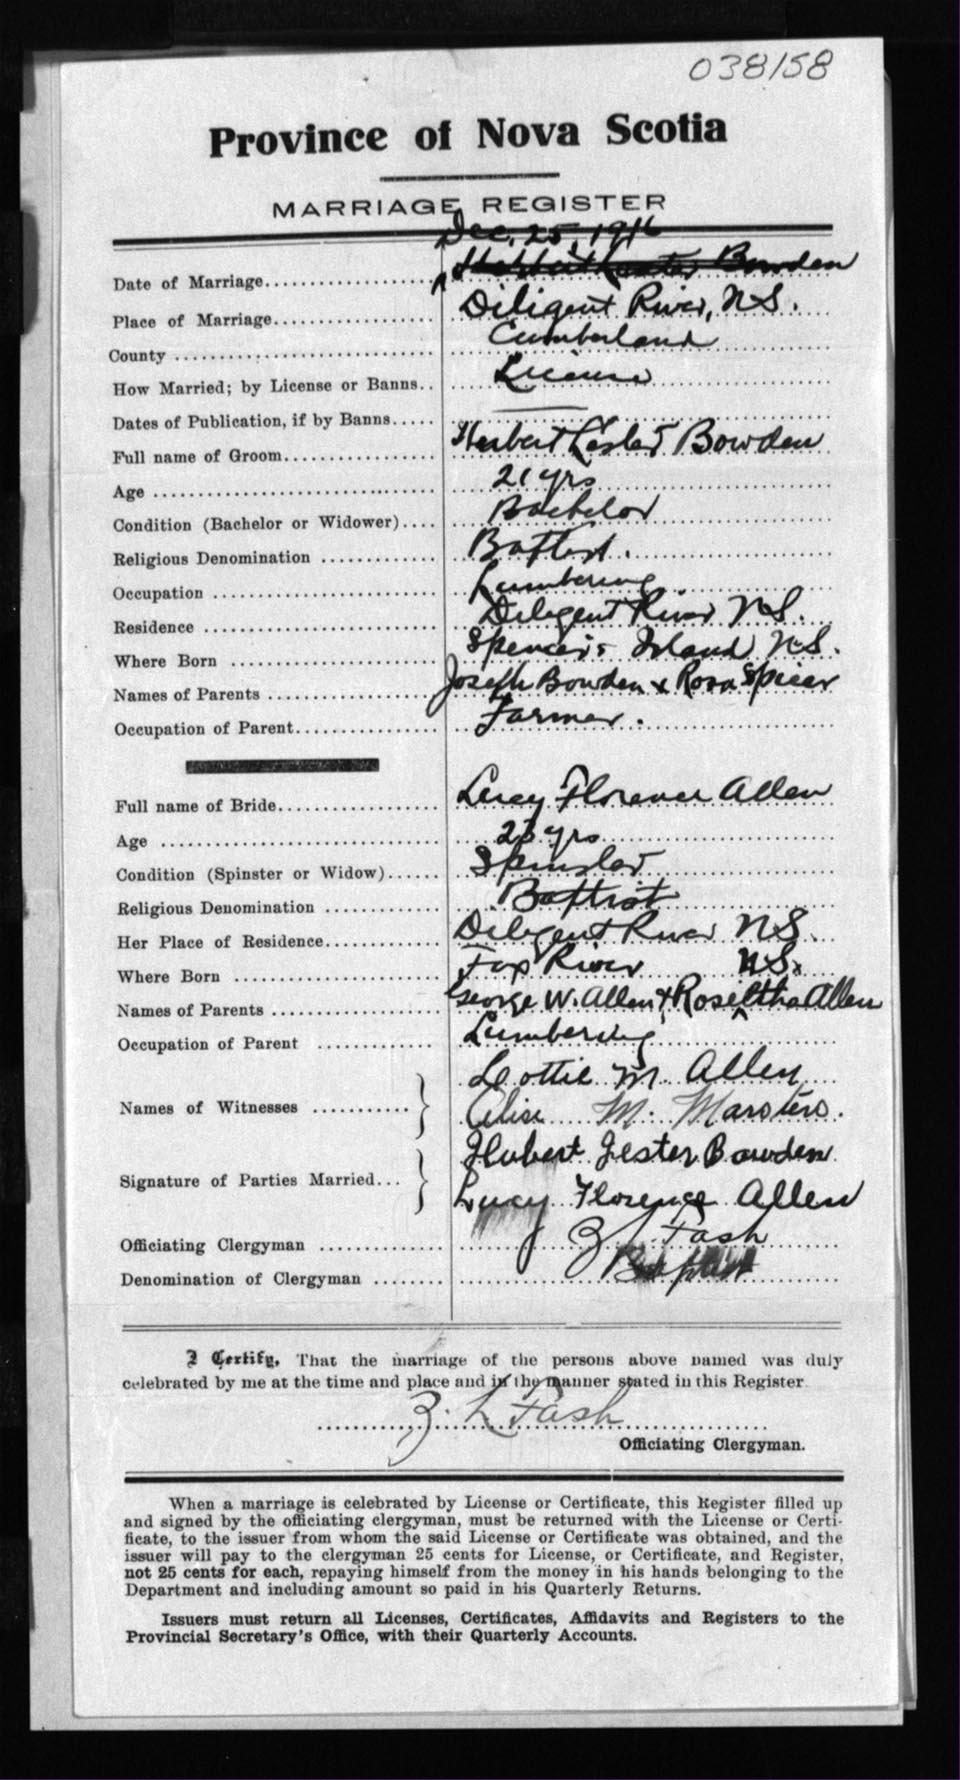 038158
Province of Nova Scotia
MARRIAGE REGISTER
Dec. 25, 1916
Date of Marriage Bowden
Place of Marriage Diligent River, N.S.
County Cumberland
How Married; by License or Banns License
Dates of Publication, if by Banns
Full name of Groom Herbert Lester Bowden
Age 21 yrs
Condition (Bachelor or Widower) Bachelor
Religious Denomination Baptist.
Occupation Lumbering
Residence Diligent River N.S.
Where Born Spencer's Island N.S.
Names of Parents Joseph Bowden & Rosa Spicer
Occupation of Parent Farmer.
Full name of Bride Lucy Florence Allen
Age 23 yrs
Condition (Spinster or Widow) Spinster
Religious Denomination Baptist
Her Place of Residence Diligent River N.S.
Where Born Fox River N.S.
Names of Parents George W. Allen & Roseltha Allen
Occupation of Parent Lumbering
Lottie M. Allen
Names of Witnesses
M. Marsters.
Hubert Lester Bowden
Signature of Parties Married
Lucy Florence Allen
Officiating Clergyman Z L Fash
Denomination of Clergyman Baptist
I Certify, That the marriage of the persons above named was duly
celebrated by me at the time and place and in the manner stated in this Register.
Z. L Fash
Officiating Clergyman.
When a marriage is celebrated by License or Certificate, this Register filled up
and signed by the officiating clergyman, must be returned with the License or Certi-
ficate, to the issuer from whom the said License or Certificate was obtained, and the
issuer will pay to the clergyman 25 cents for License, or Certificate, and Register,
not 25 cents for each, repaying himself from the money in his hands belonging to the
Department and including amount so paid in his Quarterly Returns.
Issuers must return all Licenses, Certificates, Affidavits and Registers to the
Provincial Secretary's Office, with their Quarterly Accounts.